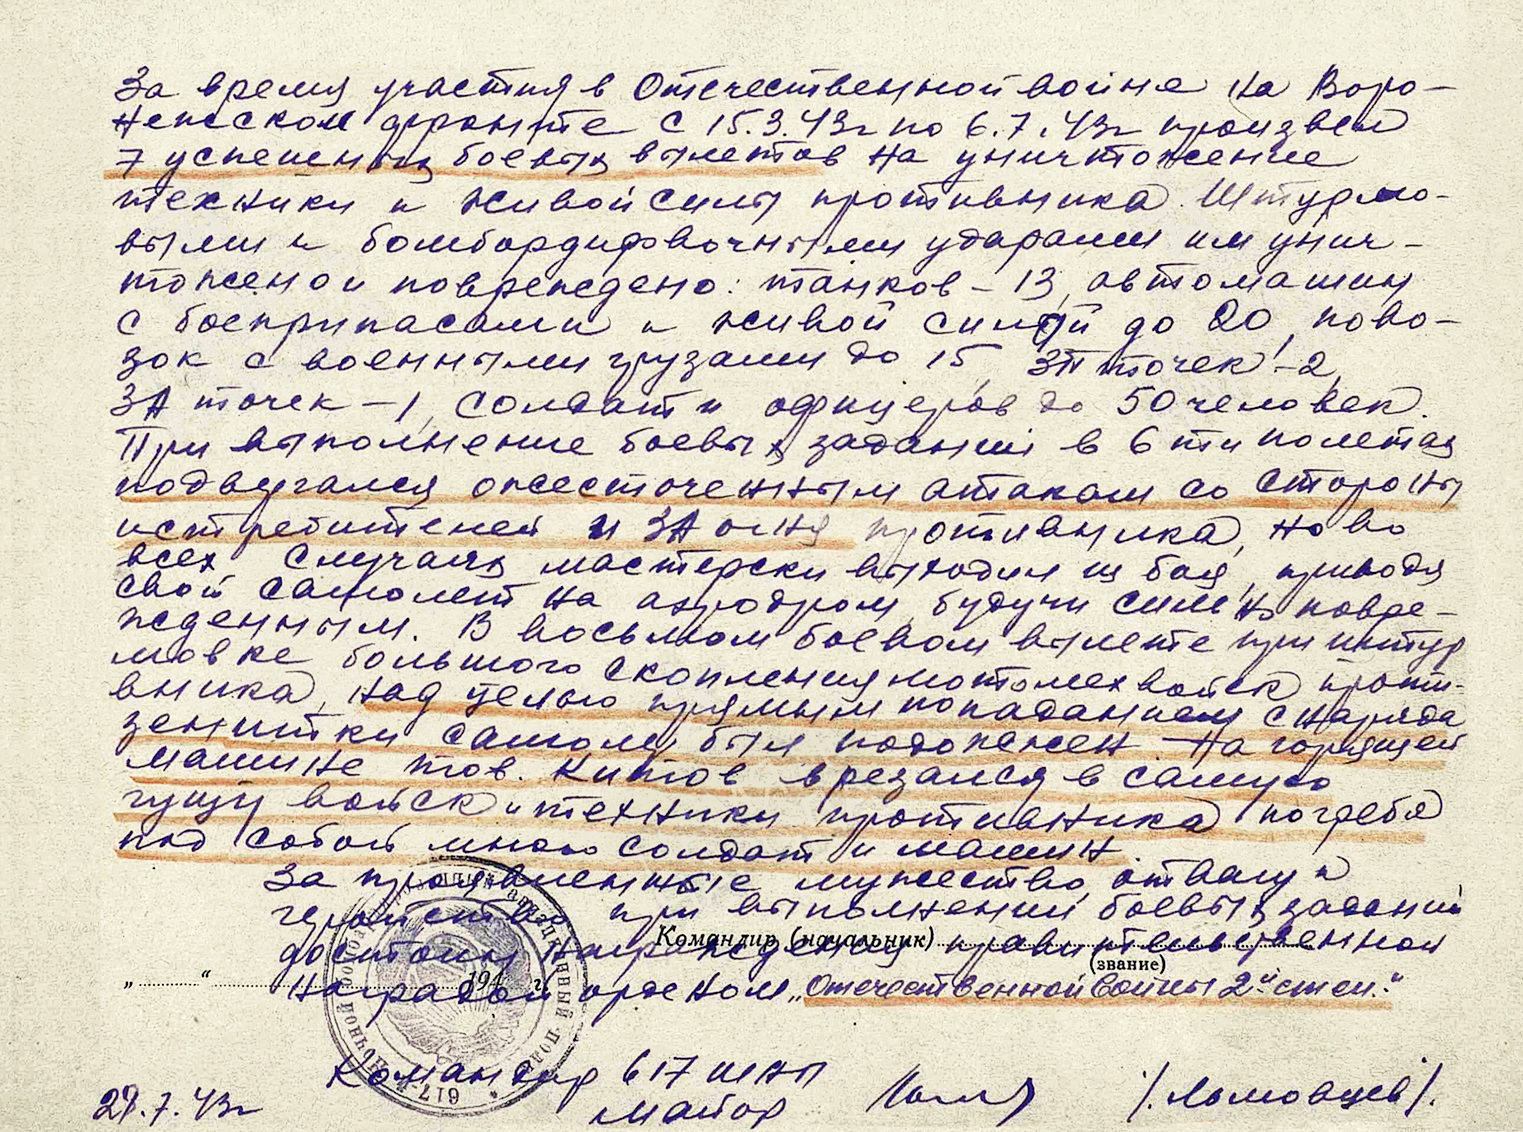 За время участия в Отечественной войне на Воро-
нежском фронте с 15.3.43г по 6.7.43г произвел
7 успешных боевых вылетов на уничтожение
техники и живой силы противника. Штурмо-
выми и бомбардировочными ударами им унич-
тожено и повреждено: танков – 13, автомашин
с боеприпасами и живой силой до 20, пово-
зок с военными грузами до 15, ЗП точек – 2,
ЗА точек – 1, солдат и офицеров до 50 человек.
При выполнение боевых заданий в 6 ти полетах
подвергался ожесточенным атакам со стороны
истребителей и ЗА огня противника, но во
всех случаях мастерски выходил из боя, приводя
свой самолет на аэродром, будучи сильно повре-
жденным. В восьмом боевом вылете при штур
мовке большого скопления мотомехвойск проти-
вника, над целью прямым попаданием снаряда
зенитки самолет был подожжен. На горящей
машине тов. Китов врезался в самую
гущу войск и техники противника погребя
под собой много солдат и машин.
За проявленные мужество, отвагу и
геройство при выполнении боевых заданий
Командир (начальник)
достоин награждения правительственной
(звание)
„ “ 194 г.
наградой орденом „Отечественной войны 2й степ.“
Командир 617 шап
майор /Ломовцев/.
29.7.43г